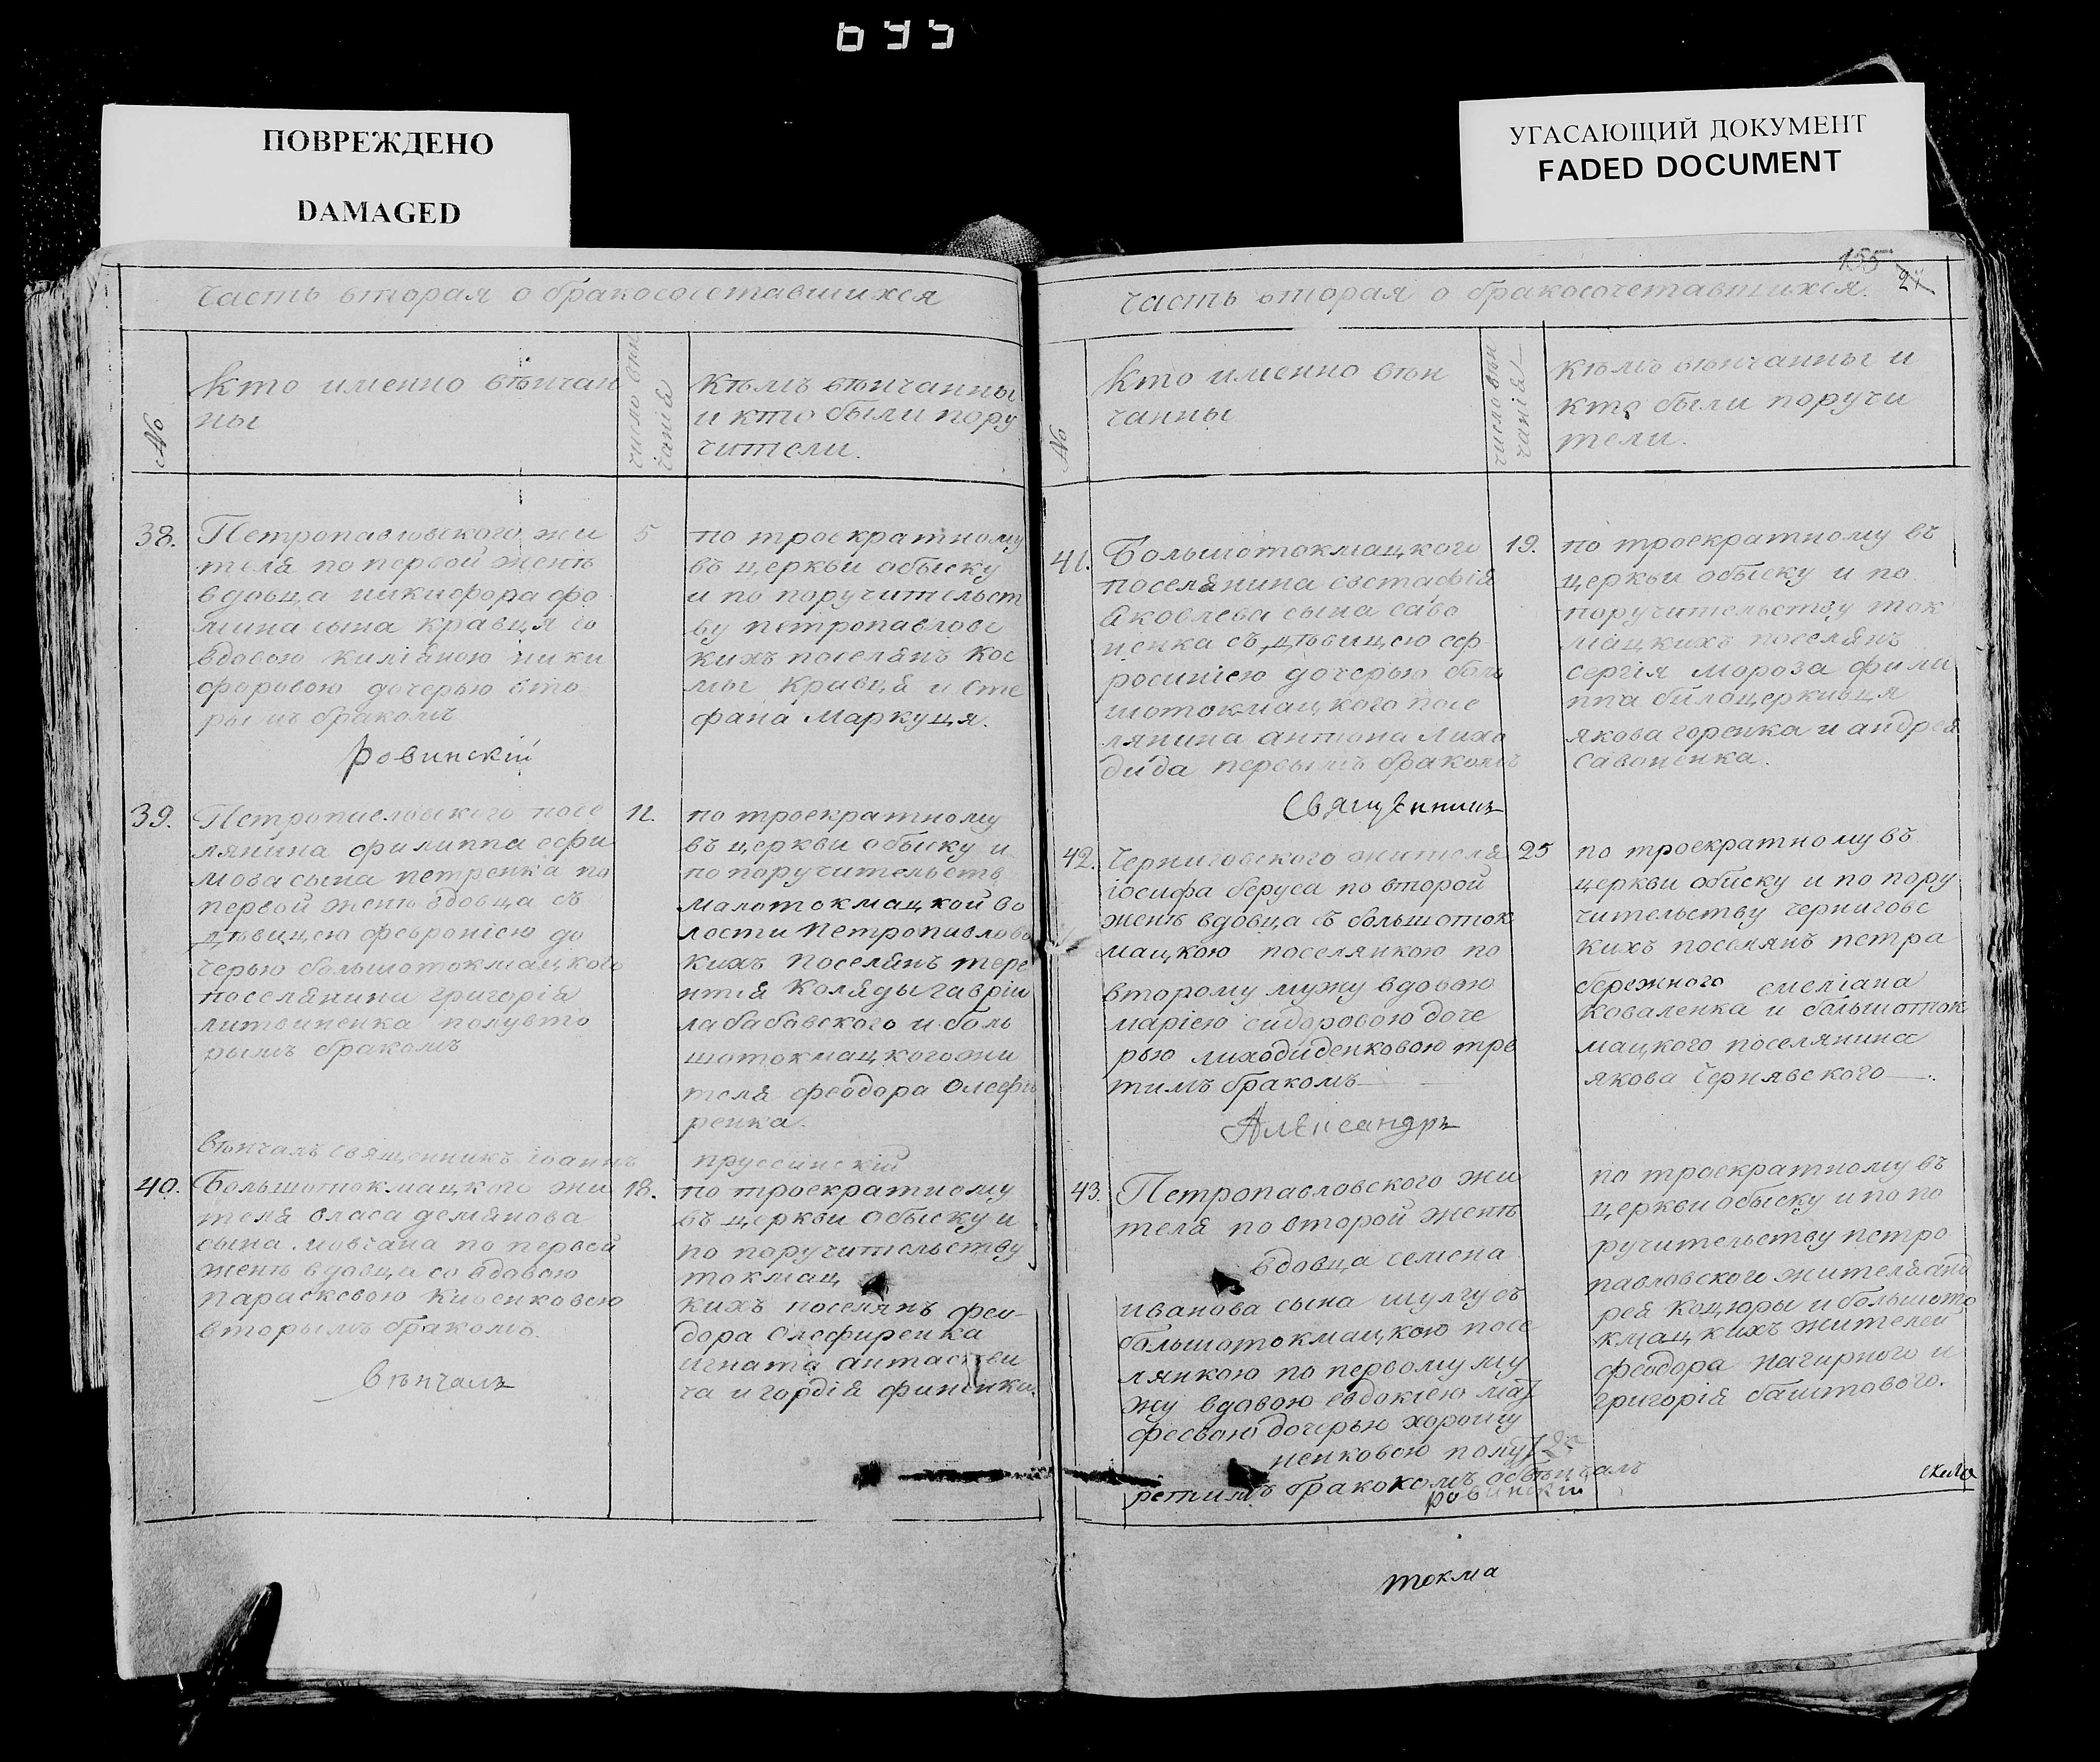 645
ПОВРЕЖДЕНО
DAMAGED
УГАСАЮЩИЙ ДОКУМЕНТ
FADED DOCUMENT
часть вторая о бракосочетавшихся
№
кто именно вѣнчан
ны
число вѣн
чанія
кѣмъ вѣнчанны
и кто были пору
чители.
38.
Петропавловского жи
теля по первой женѣ
вдовца никифора фо
мина сына кравця со
вдовою киліяною ники
форовою дочерью вто
рымъ бракомъ
Ровинскій
5
по троекратному
въ церкви обыску
и по поручительст
ву петропавловс
кихъ поселянъ кос
мы кравця и сте
фана Маркуця.
39.
Петропавловского посе
лянина филиппа ефи
мова сына петренка по
первой женѣ вдовца съ
дѣвицею февроніею до
черью большотокмацкого
поселянина григорія
литвиненка полувто
рымъ бракомъ
11.
по троекратному
въ церкви обыску и
по поручительств
малотокмацкой во
лости Петропавловс
кихъ поселянъ тере
нтія Коляды гаврии
ла бабавского и боль
шотокмацкого жи
теля феодора Олефи
ренка.
вѣнчалъ священникъ іоаннъ
прусинскій
40.
Большотокмацкого жи
теля власа демянова
сына мовчана по первой
женѣ вдовца со вдовою
параскевою
вторымъ бракомъ.
вѣнчалъ
18.
по троекратному
въ церкви обыску и
по поручительству
токмац
кихъ поселянъ фео-
дора Олефиренка
игната
ча и гордія финенка.
часть вторая о бракосочетавшихся.
155
27
№
кто именно вѣн
чанны
число вѣн
чанія
кѣмъ вѣнчанны и
кто были поручи
тели.
41.
Большотокмацкого
поселянина евстафія
яковлева сына саво
ненка съ дѣвицею еф
росиніею дочерью боль
шотокмацкого посе
лянина антона лихо
дида первымъ бракомъ
Священникъ
19.
по троекратному въ
церкви обыску и по
поручительству ток
мацкихъ поселянъ
сергія мороза фили
ппа билоцеркивця
якова горенка и андрея
савоненка.
42.
Черниговского жителя
іосифа беруса по второй
женѣ вдовца съ большоток
мацкою поселянкою по
второму мужу вдовою
маріею сидоровою доче
рью лиходиденковою тре
тимъ бракомъ
Александръ
25
по троекратному въ
церкви обиску и по пору
чительству черниговс
кихъ поселянъ петра
бережного емеліана
коваленка и большоток
мацкого поселянина
якова Чернявского
43.
Петропавловского жи
теля по второй женѣ
вдовца семена
иванова сына шулгу съ
большотокмацкою посе
лянкою по первому му
жу вдовою евдокіею мат
фесвою дочерью хорошу
ненковою полут
ретимъ бракокомъ обвѣнчалъ
Ровинскій
по троекратному въ
церкви обыску и по по
ручительству петро
павловского жителя анд
рея коцюры и большото
кмацкихъ жителей
феодора нагирного и
григорія баштового.
токма